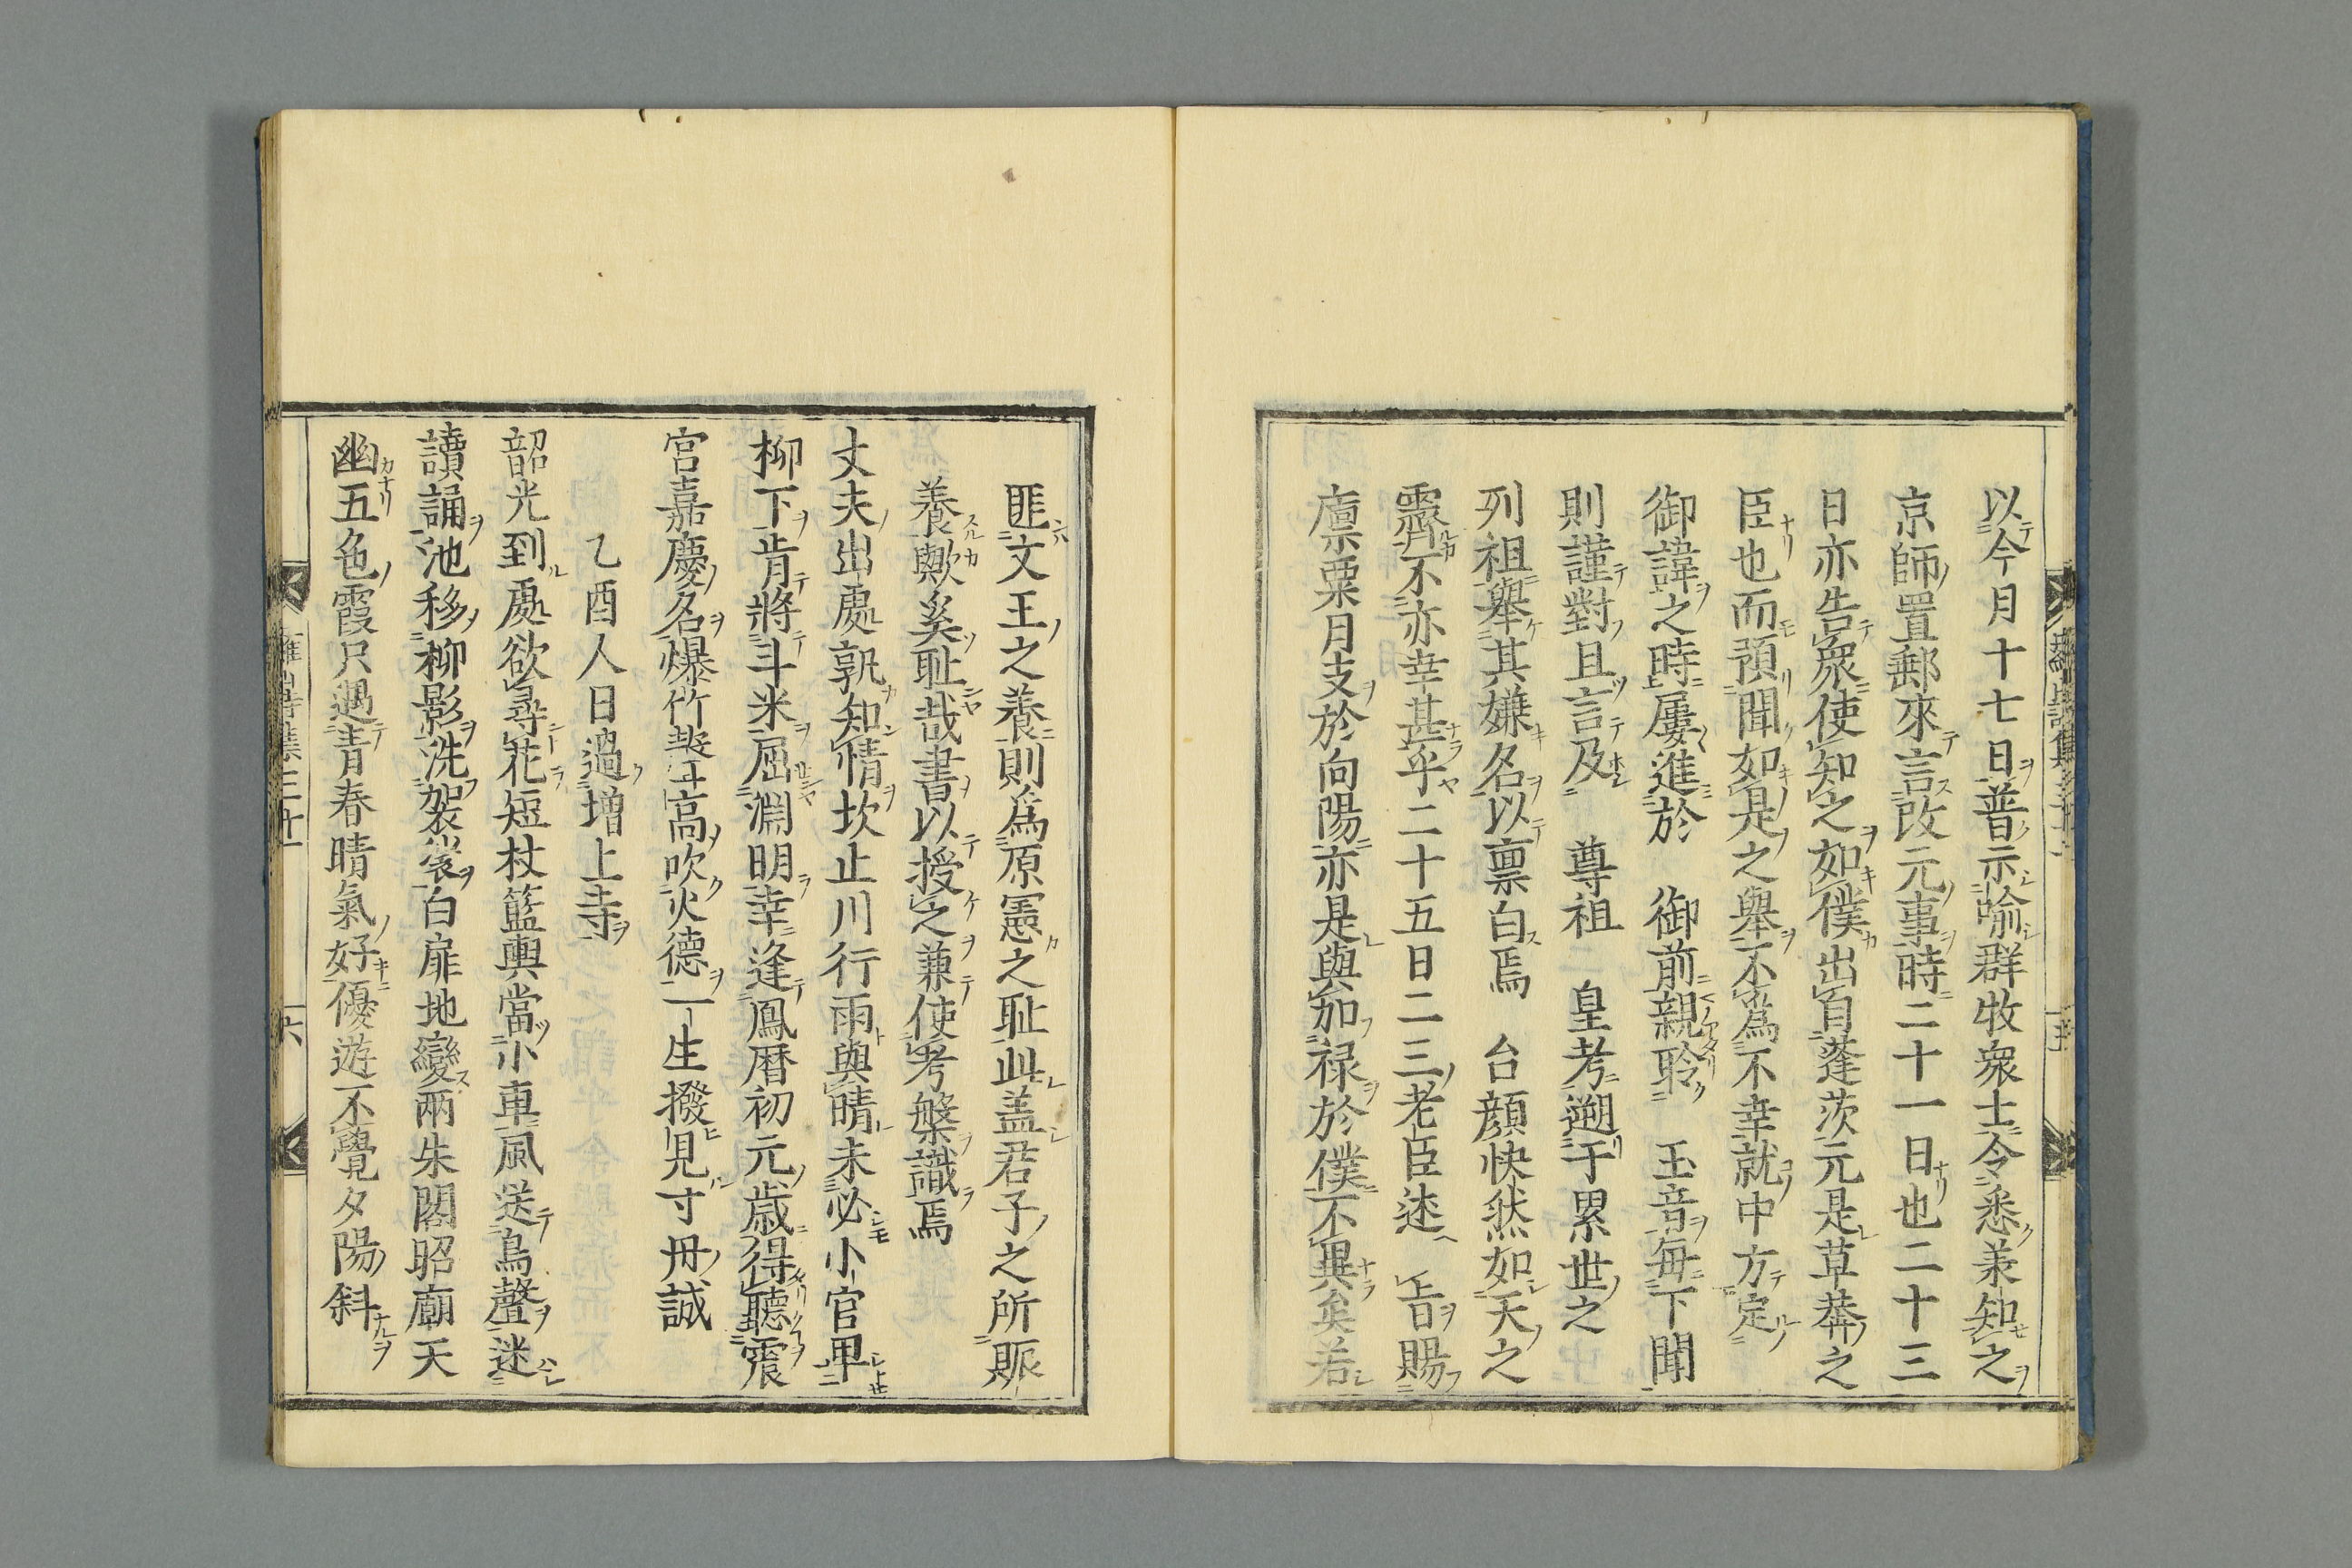 以今月十七日普示喩群牧衆士令悉兼知之
京師置郵來言改元事時二十一日也二十三
日亦告衆使知之如僕出自蓬茨元是草莽之
臣也而預聞如是之擧不爲不幸就中方定
御諱之時屢進於　御前親聆　玉音毎下聞
則謹對且言及　尊祖　皇考遡于累世之
列祖擧其嫌名以禀白焉　台顔快然如天之
霽不亦幸甚乎二十五日二三老臣述　旨賜
廩粟月支於向陽亦是與加禄於僕不異矣若
匪文王之養則爲原憲之耻此盖君子之所賑
養歟奚耻哉書以授之兼使考槃識焉
丈夫出處孰知情坎止川行雨與晴未必小官卑
柳下肯將斗米屈淵明幸逢鳳暦初元歳得聽震
宮嘉慶名爆竹聲高吹火德一生撥見寸丹誠
乙酉人日過増上寺
韶光到處欲尋花短杖籃輿當小車風送鳥聲迷
讀誦池移柳影洗袈裟白扉地變兩朱閣昭廟天
幽五色霞只遇青春晴氣好優遊不覺夕陽斜